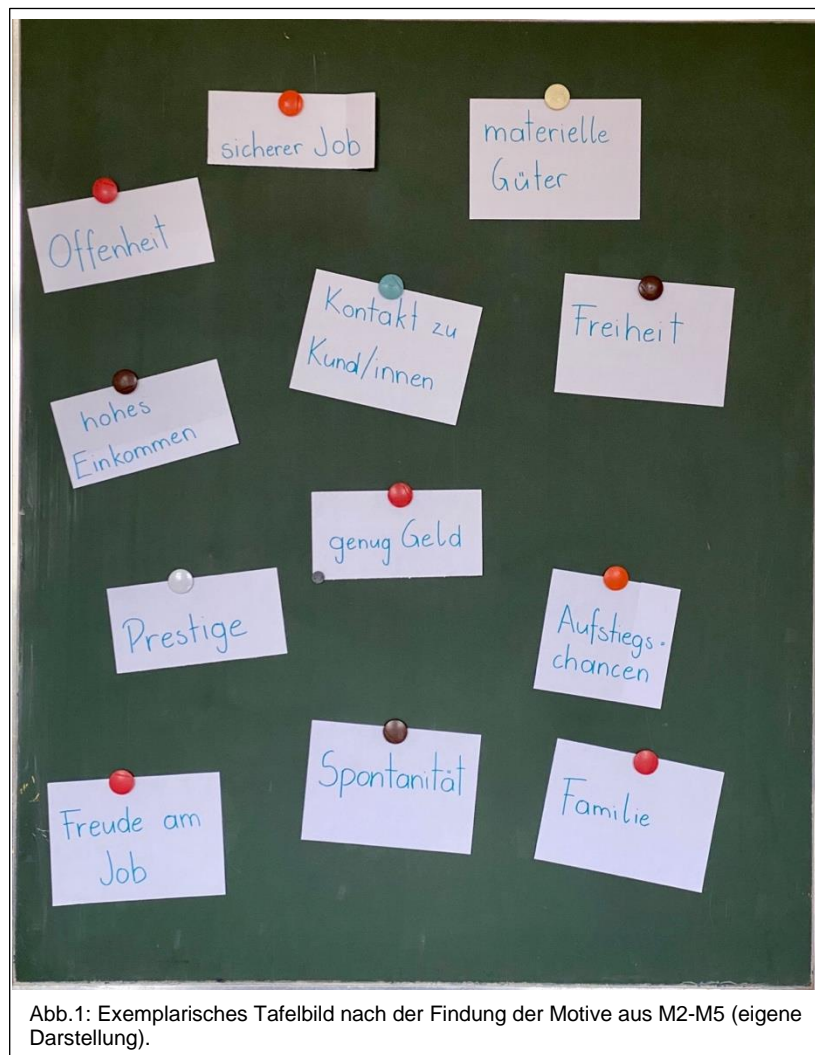 sicherer Job
materielle
Güter
Offenheit
Kontakt zu
Kund/innen
Freiheit
hohes
Einkommen
genug Geld
Prestige
Aufstiegs-
chancen
Freude am
Job
Spontanität
Familie
Abb.1: Exemplarisches Tafelbild nach der Findung der Motive aus M2-M5 (eigene
Darstellung).